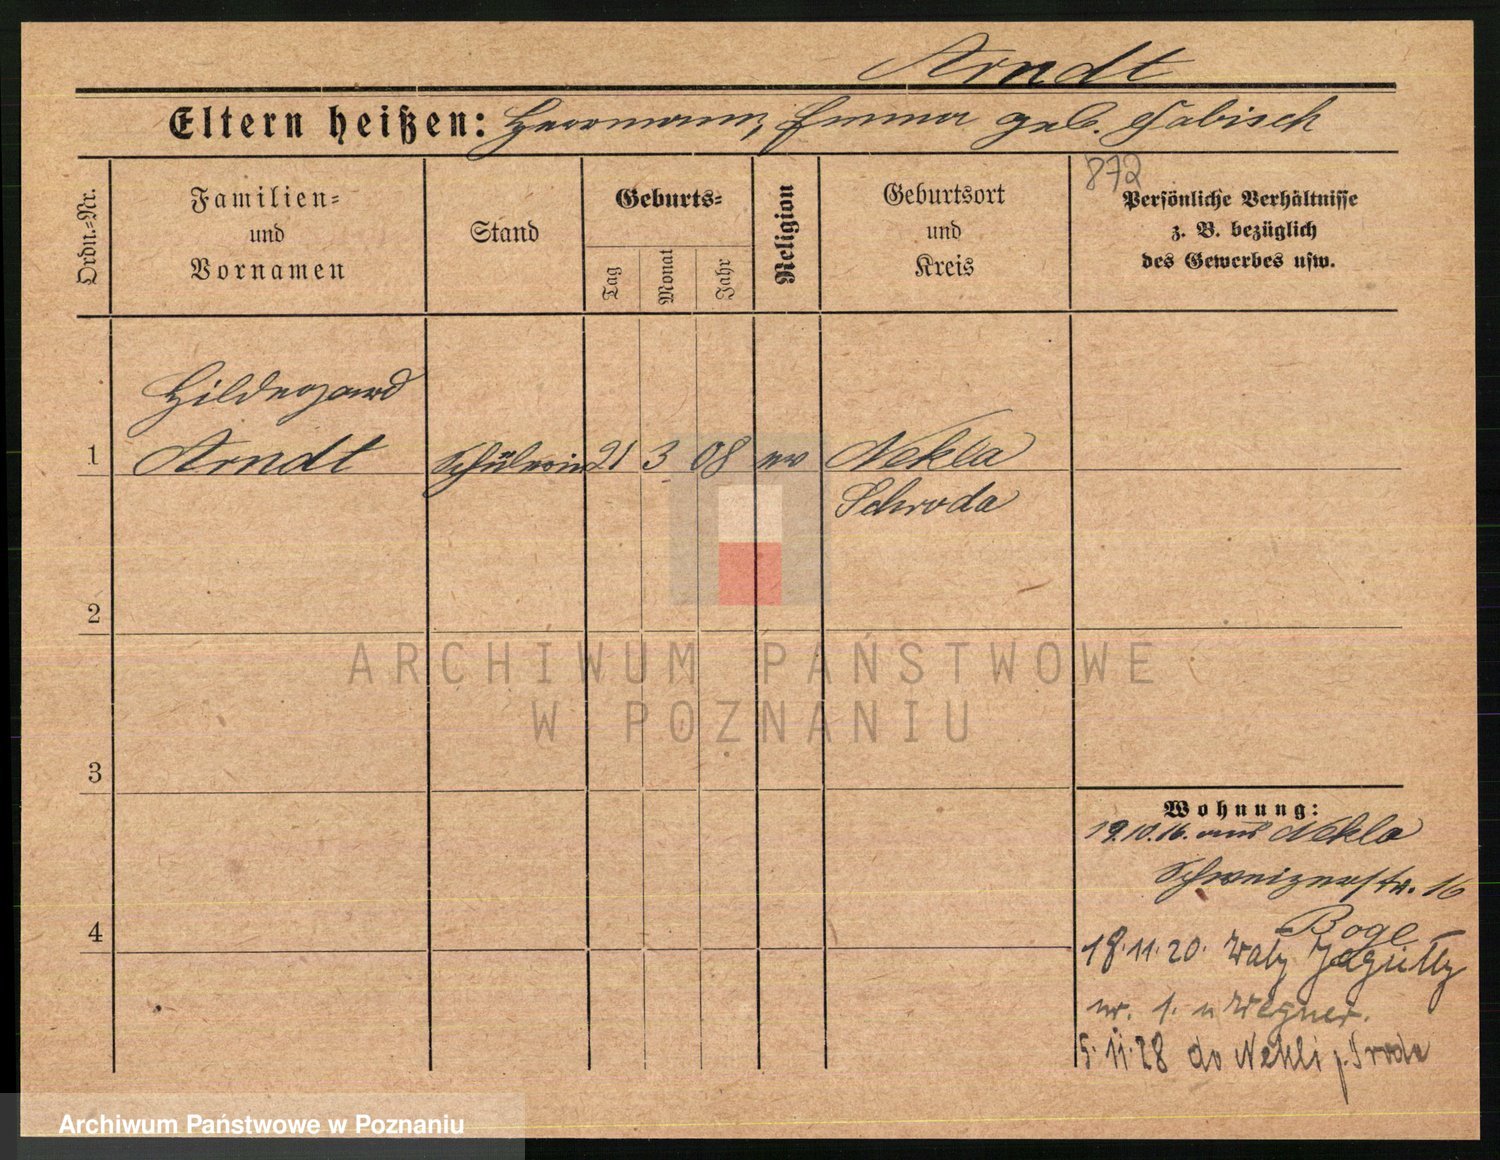 Arndt
Eltern heißen: Herrmann, Emma geb. Fabisch
872
Ordn.-Nr.
Familien-
und
Vornamen
Stand
Geburts-
Tag
Monat
Jahr
Religion
Geburtsort
und
Kreis
Persönliche Verhältnisse
z. B. bezüglich
des Gewerbes usw.
Hildegard
1 Arndt Schülerin 21 3 08 ev Nekla
Schroda
2
3
4
Wohnung:
19.10.16. aus Nekla
Schweizerstr. 16
Boge
18.11.20. Wały Jagiełły
nr. 1. u Wegner.
5.11.28 do Nekli p. Środa
ARCHIWUM PAŃSTWOWE
W POZNANIU
Archiwum Państwowe w Poznaniu